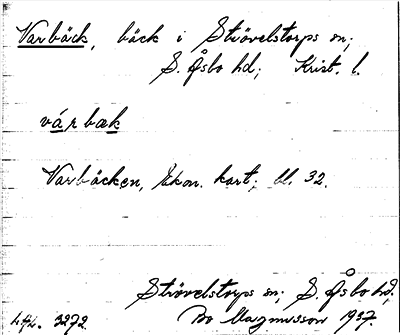 Varbäck, bäck i Strövelstorps sn;
S. Åsbo hd; Krist. l.
várbæk
Varbäcken, Ekon. kart; bl. 32.
Strövelstorps sn; S. Åsbo hd,
3272. Bo Magnusson 1937